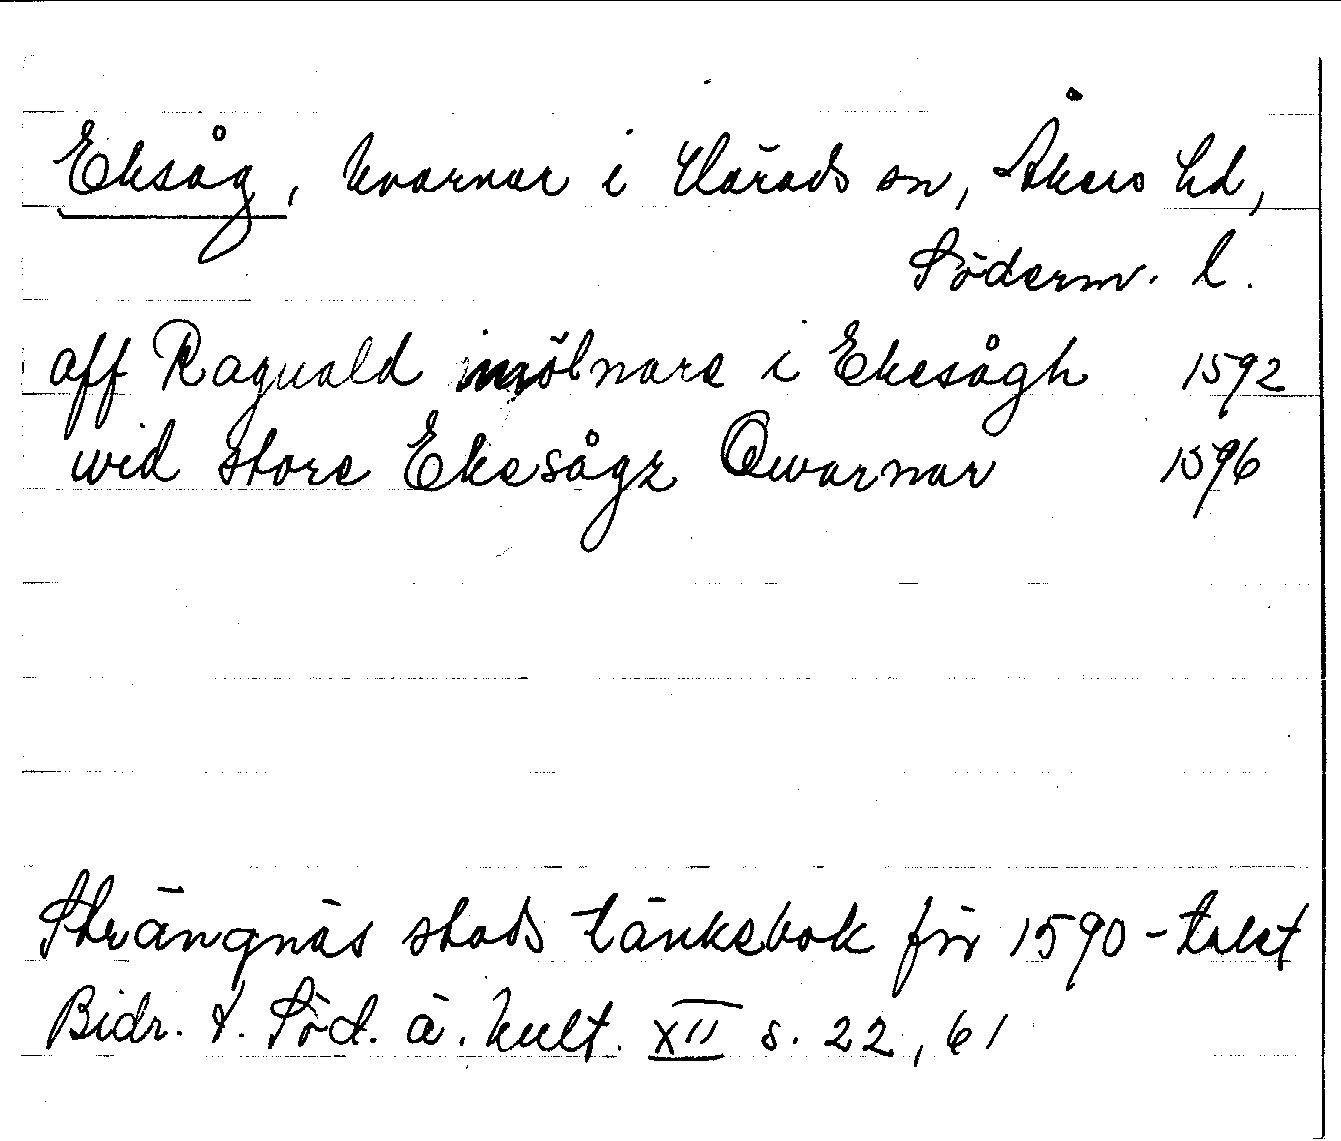 Eksåg, kvarnar i Härads sn, Åkers hd,
Söderm. l.
aff Raguald mölnare i Ekesågh 1592
wid store Ekesågz Qwarnar 1596
Strängnäs stads tänkebok för 1590-talet
Bidr. t. Söd. ä. kult. XII s. 22, 61